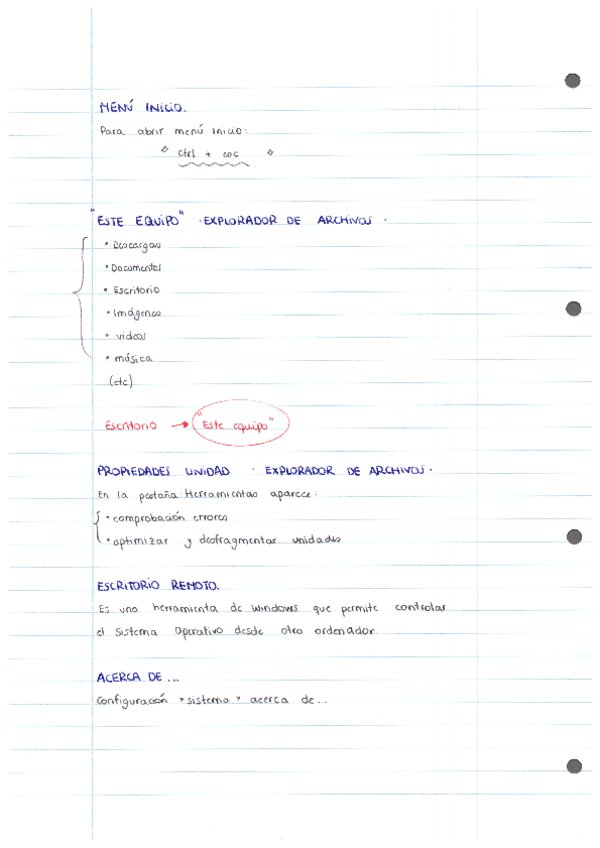 MENÚ INICIO.
Para abrir menú inicio:
ctrl + esc
"ESTE EQUIPO" · EXPLORADOR DE ARCHIVOS ·
• Descargas
• Documentos
• Escritorio
• Imágenes
• videos
• música
(etc)
Escritorio → "Este equipo"
PROPIEDADES UNIDAD · EXPLORADOR DE ARCHIVOS ·
En la pestaña Herramientas aparece:
• comprobación errores
• optimizar y desfragmentar unidades
ESCRITORIO REMOTO.
Es una herramienta de windows que permite controlar
el sistema operativo desde otro ordenador.
ACERCA DE ...
Configuración > sistema > acerca de...